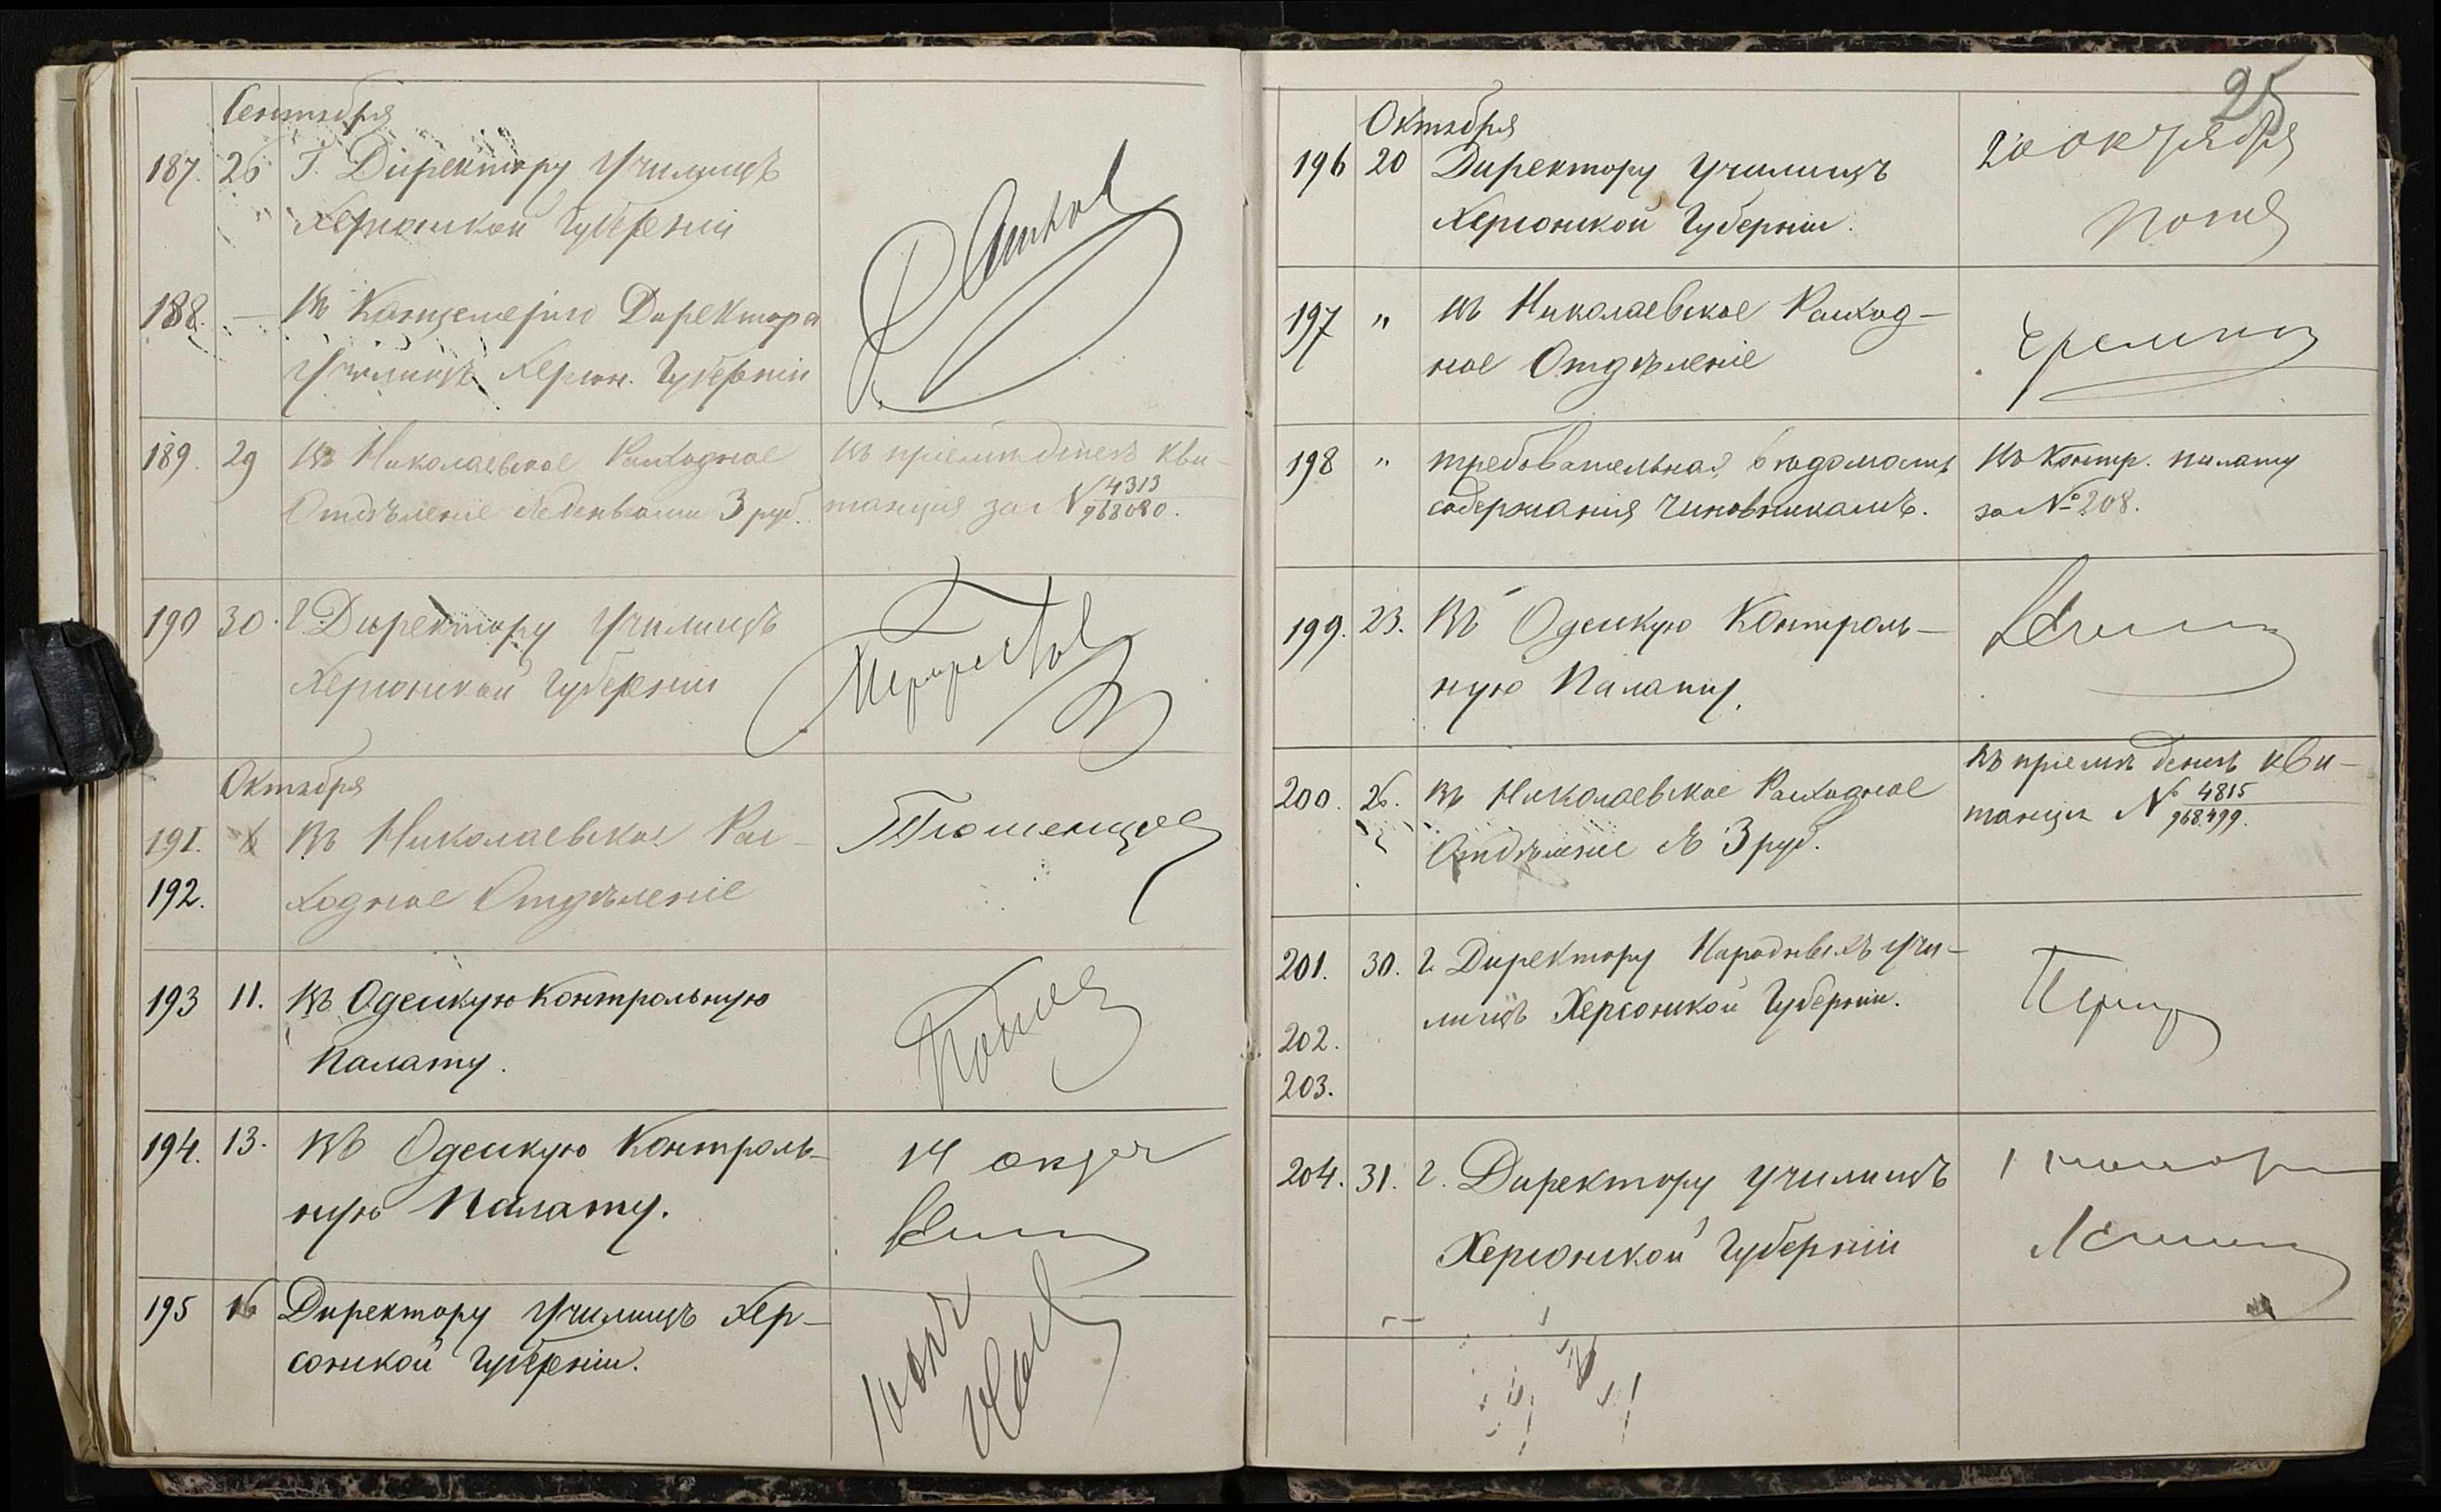 Сентября
187. 26 Г. Директору Училищъ
Херсонской Губерніи
188. — Въ Канцелярію Директора
Училищъ Херсон. Губерніи
189. 29 Въ Николаевское Расходное
Отдѣленіе съ деньгами 3 руб.
Въ пріемѣ денегъ кви-
танція за № 4313
968080.
190 30. Г. Директору Училищъ
Херсонской Губерніи
Октября
191. Въ Николаевское Рас-
192. ходное Отдѣленіе
193 11. Въ Одесскую Контрольную
Палату.
194. 13. Въ Одесскую Контроль-
ную Палату.
14
195 16 Директору Училищъ Хер-
сонской Губерніи.
25
Октября
196 20 Директору Училищъ
Херсонской Губерніи.
20 октября
197 " Въ Николаевское Расход-
ное Отдѣленіе
198 " требовательная
содержанія чиновникамъ.
Въ Контр. палату
за № 208.
199. 23. Въ Одесскую Контроль-
ную Палату.
200. 26. Въ Николаевское Расходное
Отдѣленіе съ 3 руб.
Въ пріемѣ денегъ кви-
танція № 4815
968.499.
201. 30. Г. Директору Народныхъ Учи-
лищъ Херсонской Губерніи.
202.
203.
204. 31. Г. Директору Училищъ
Херсонской Губерніи